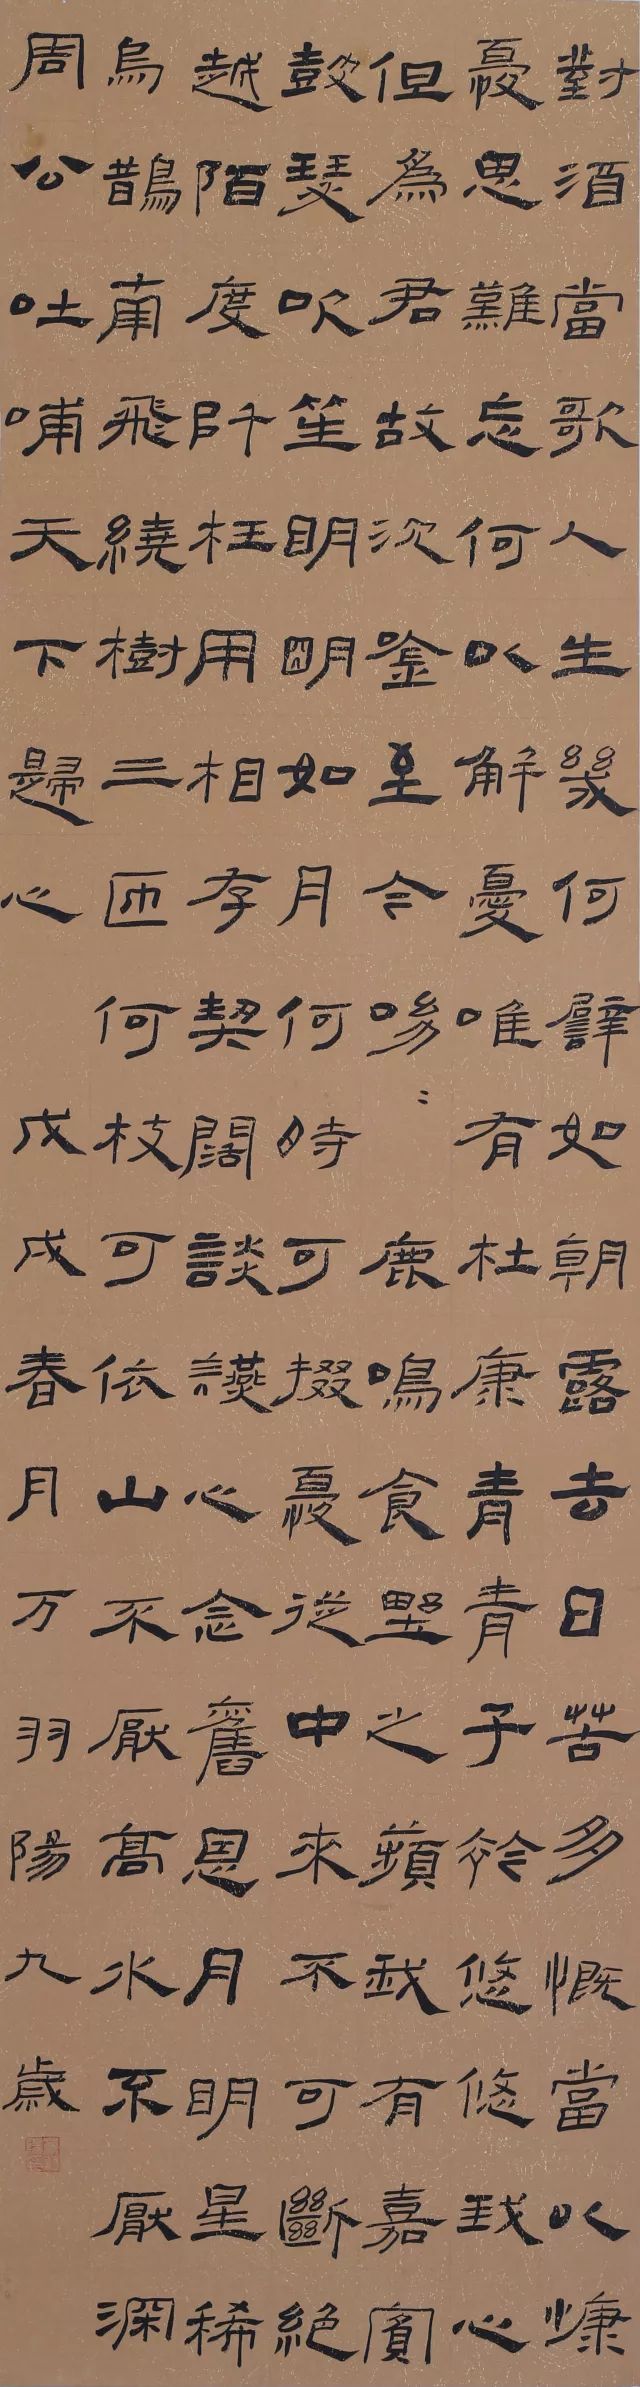 對酒當歌人生幾何譬如朝露去日苦多慨當以慷
憂思難忘何以解憂唯有杜康青青子衿悠悠我心
但為君故沉唫至今呦〻鹿鳴食野之蘋我有嘉賓
鼓瑟吹笙明明如月何時可掇憂從中來不可斷絕
越陌度阡枉用相存契闊談讌心念舊恩月明星稀
烏鵲南飛繞樹三匝何枝可依山不厭高水不厭深
周公吐哺天下歸心 戊戌春月万羽陽九歲